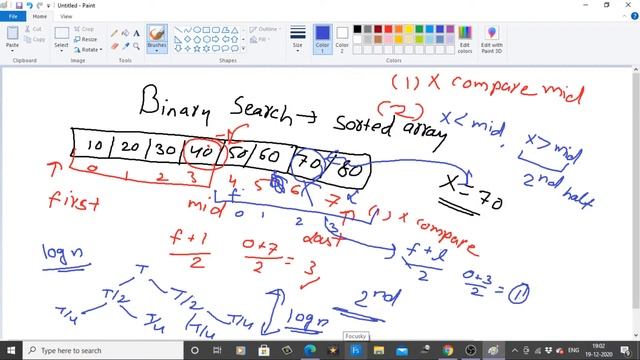 Untitled - Paint
File Home View
Paste
Select
Brushes
Size
Color 1
Color 2
Edit colors
Edit with Paint 3D
Clipboard
Image
Tools
Shapes
Colors
(1) X compare mid
Binary Search → Sorted array
(2)
x < mid, x > mid
2nd half
10 | 20 | 30 | 40 | 50 | 60 | 70 | 80
0 1 2 3 4 5 6 7
X = 70
first mid last
f l
0 1 2 3
(1) X compare
f+l/2 0+7/2 = 3
f+l/2 0+3/2 = 1
2nd
log n
T
T/2 T/2
T/4 T/4 T/4 T/4
log n
Focusky
Type here to search
ENG
19:02
19-12-2020